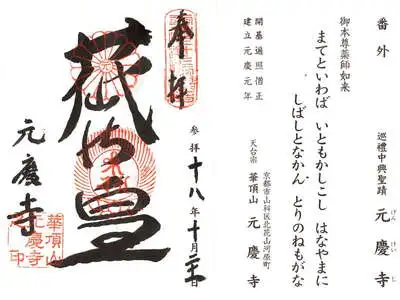 番外
巡禮中興聖蹟 元慶寺
げん けい じ
御本尊薬師如来
まてといわば いともかしこし はなやまに
しばしとなかん とりのねもがな
開基遍照僧正
建立元慶元年
京都市山科区北花山河原町
天台宗 華頂山 元慶寺
奉拝
参拝 十八年十月 日
元慶寺
華頂山
元慶寺
印